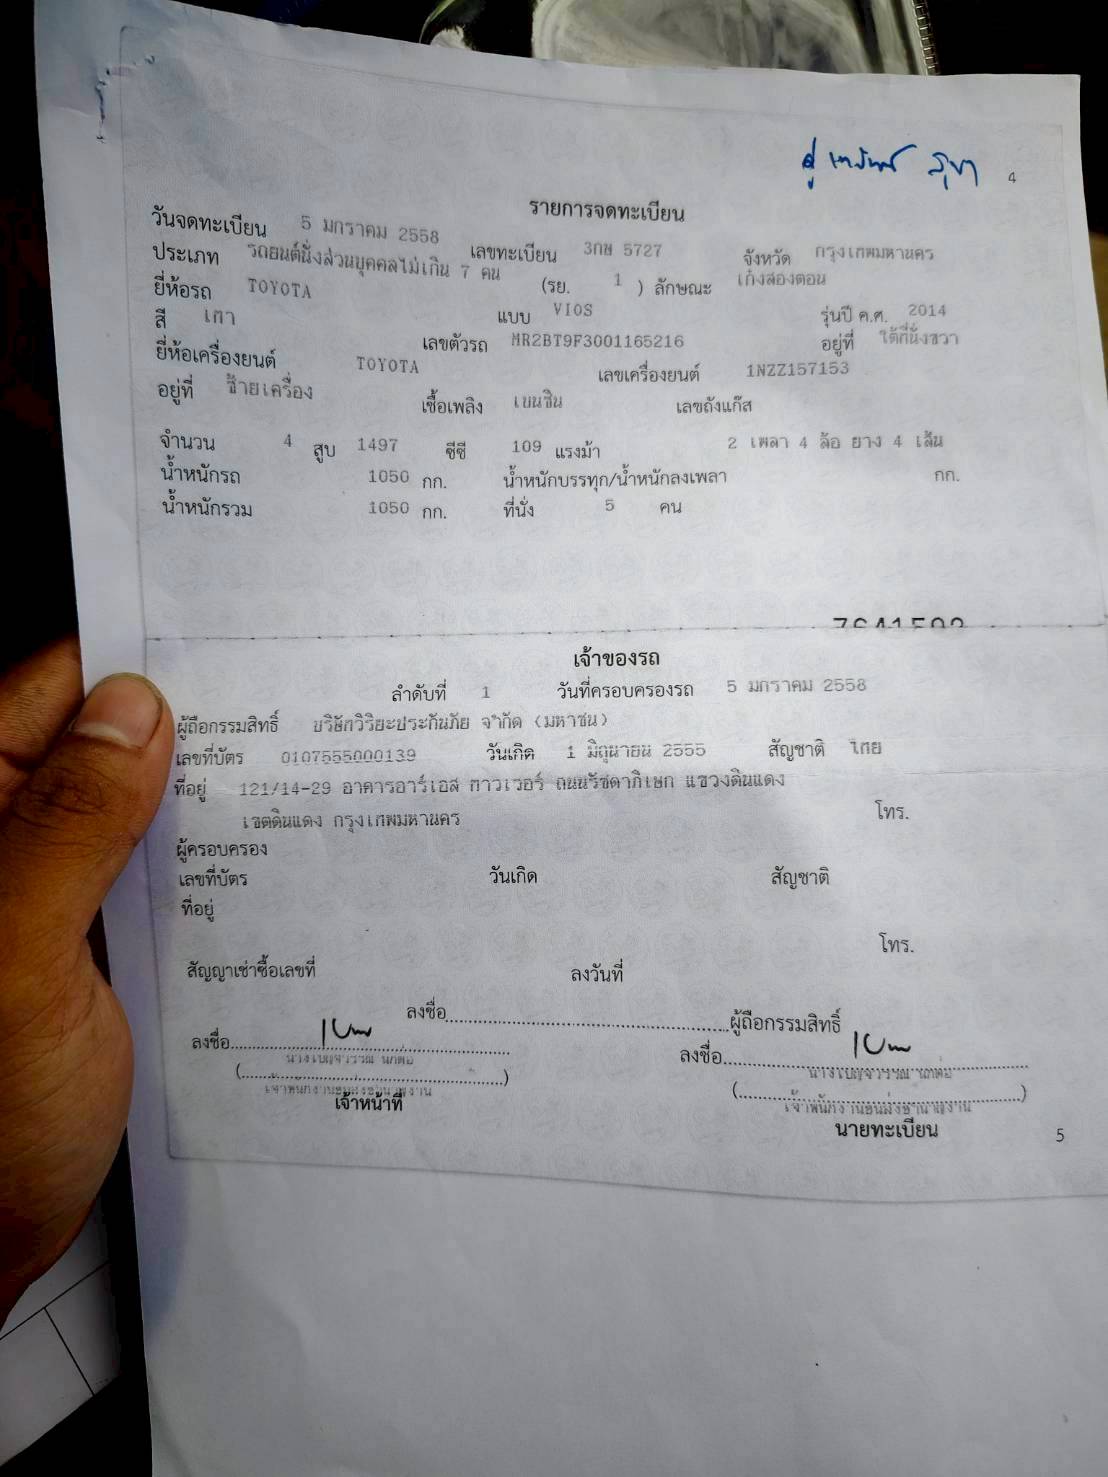 4
รายการจดทะเบียน
วันจดทะเบียน 5 มกราคม 2558 เลขทะเบียน 3กษ 5727 จังหวัด กรุงเทพมหานคร
ประเภท รถยนต์นั่งส่วนบุคคลไม่เกิน 7 คน (รย. 1 ) ลักษณะ เก๋งสองตอน
ยี่ห้อรถ TOYOTA แบบ VIOS รุ่นปี ค.ศ. 2014
สี เทา เลขตัวรถ MR2BT9F3001165216 อยู่ที่ ใต้ที่นั่งขวา
ยี่ห้อเครื่องยนต์ TOYOTA เลขเครื่องยนต์ 1NZZ157153
อยู่ที่ ซ้ายเครื่อง เชื้อเพลิง เบนซิน เลขถังแก๊ส
จำนวน 4 สูบ 1497 ซีซี 109 แรงม้า 2 เพลา 4 ล้อ ยาง 4 เส้น
น้ำหนักรถ 1050 กก. น้ำหนักบรรทุก/น้ำหนักลงเพลา กก.
น้ำหนักรวม 1050 กก. ที่นั่ง 5 คน
เจ้าของรถ
ลำดับที่ 1 วันที่ครอบครองรถ 5 มกราคม 2558
ผู้ถือกรรมสิทธิ์ บริษัทวิริยะประกันภัย จำกัด (มหาชน)
เลขที่บัตร 0107555000139 วันเกิด 1 มิถุนายน 2555 สัญชาติ ไทย
ที่อยู่ 121/14-29 อาคารอาร์เอส ทาวเวอร์ ถนนรัชดาภิเษก แขวงดินแดง
เขตดินแดง กรุงเทพมหานคร โทร.
ผู้ครอบครอง
เลขที่บัตร วันเกิด สัญชาติ
ที่อยู่
โทร.
สัญญาเช่าซื้อเลขที่ ลงวันที่
ลงชื่อ ผู้ถือกรรมสิทธิ์
ลงชื่อ ลงชื่อ
เจ้าพนักงานขนส่งชำนาญงาน เจ้าพนักงานขนส่งชำนาญงาน
เจ้าหน้าที่ นายทะเบียน
5